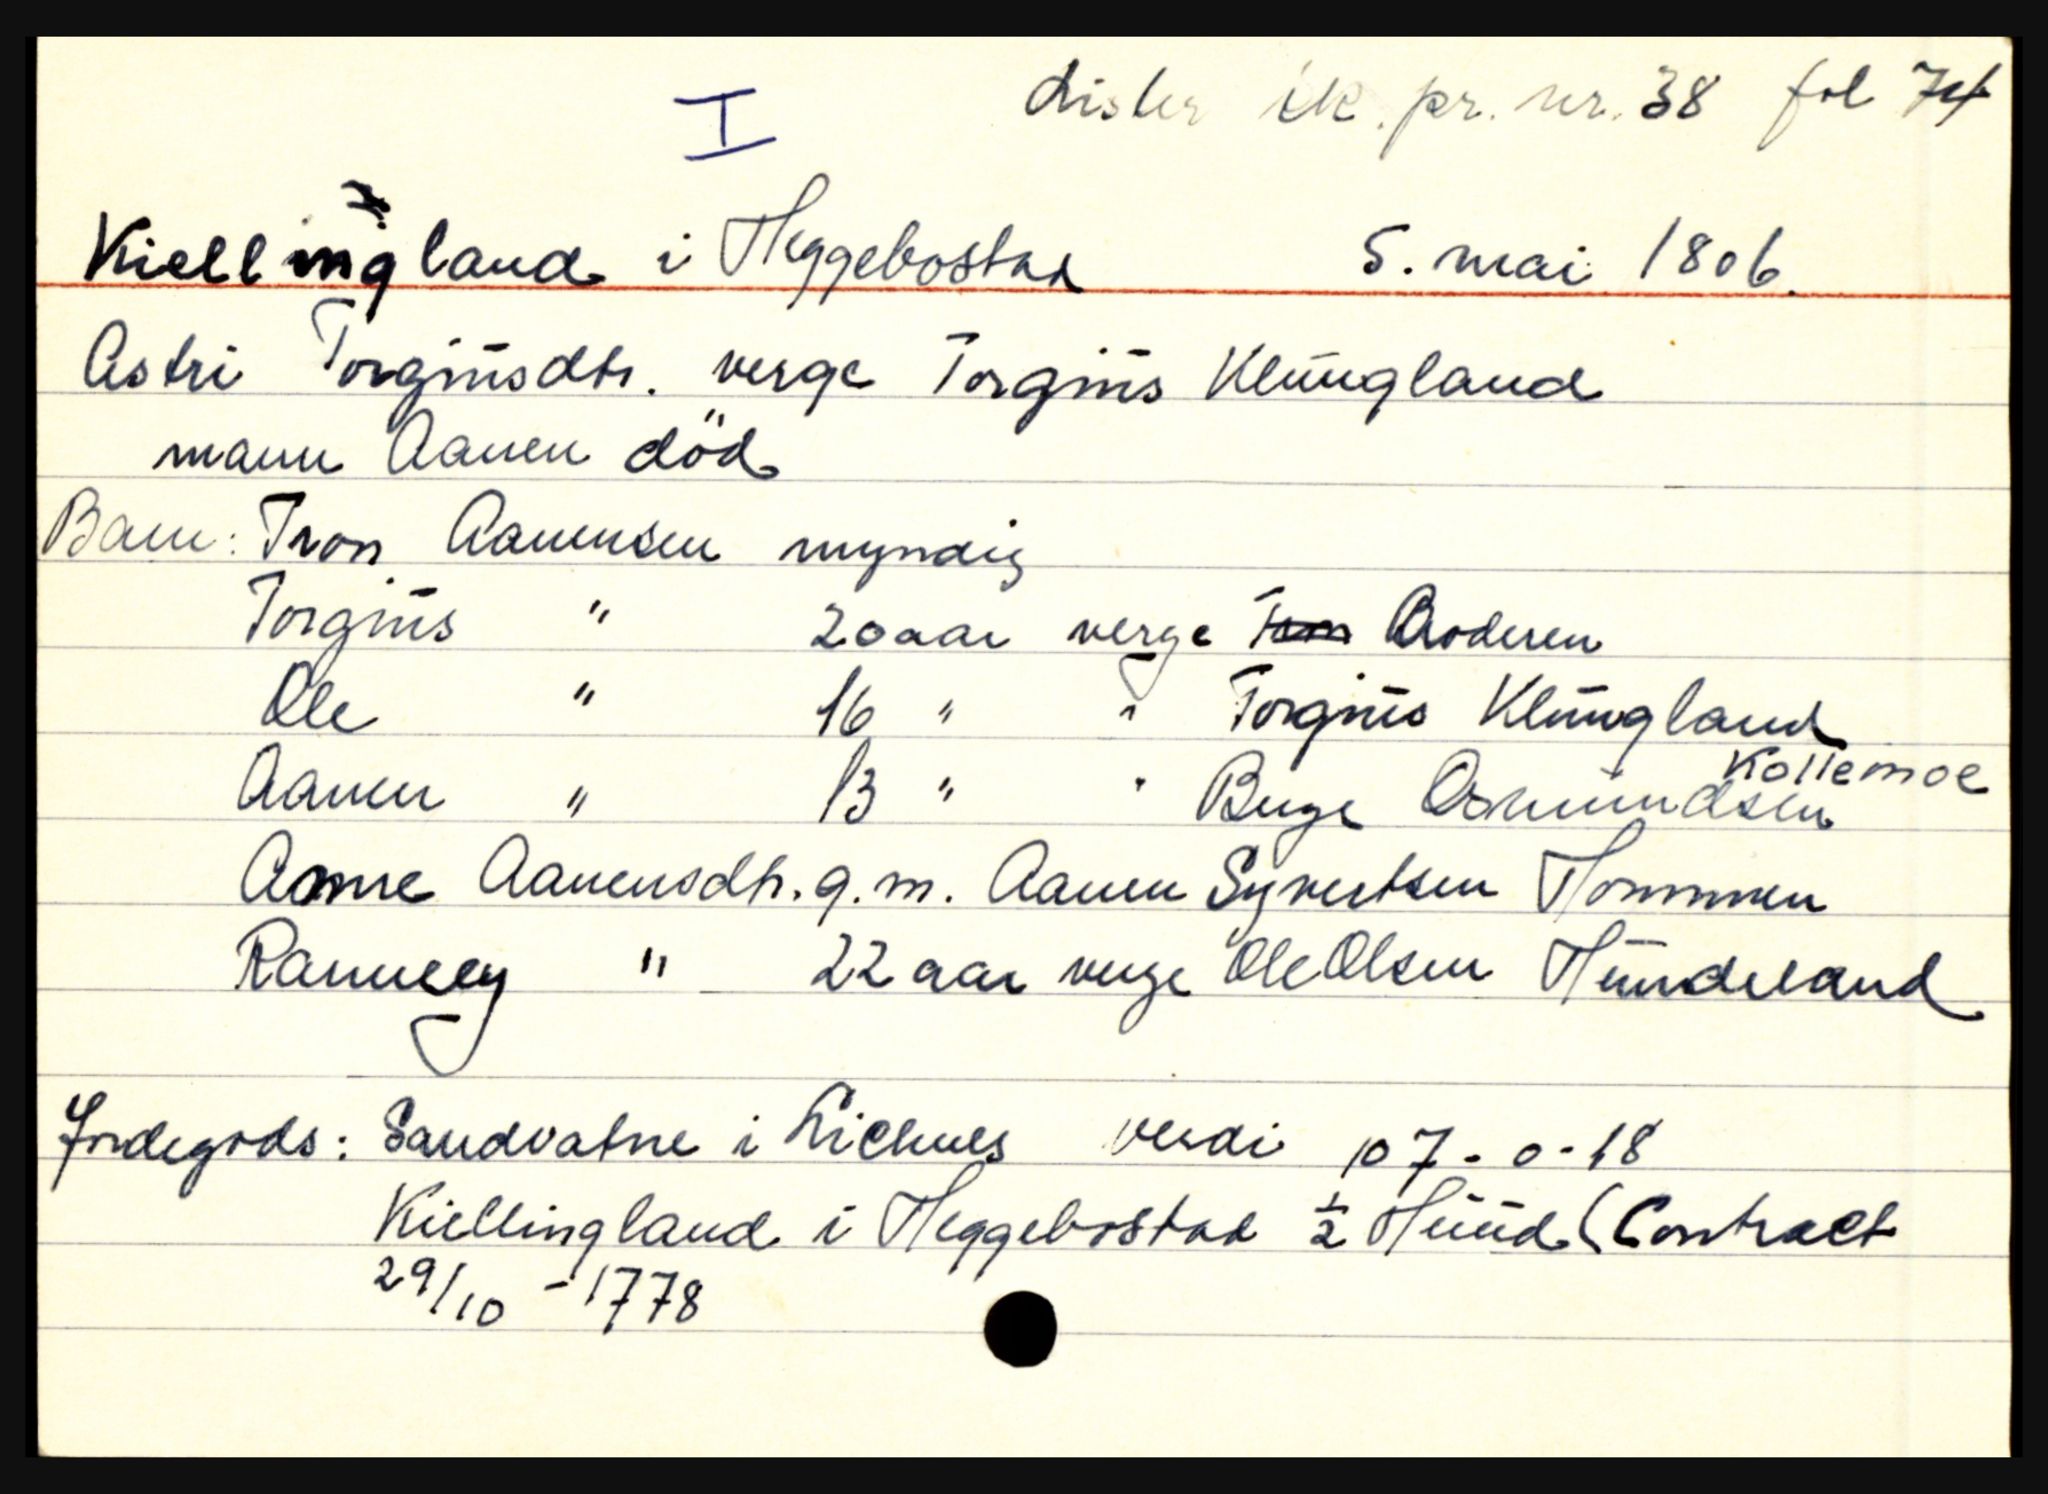 I
Lister sk. pr. nr. 38 fol 74
Kiellingland i Heggebostad 5. mai 1806.
Astri Torgiusdtr. verge Torgius Klungland
mann Aanen död
Barn: Tron Aanensen myndig
Torgius " 20 aar verge Broderen
Ole " 16 " " Torgius Klungland
Kollemoe
Aanen " 13 " " Berge Osmundsen
Anne Aanensdtr. g. m. Aanen Syvertsen Hommen
Ranney " 22 aar verge Ole Olsen Hundeland
Jordegods: Sandvatne i Lichnes verdi 107-0-18
Kiellingland i Heggebostad ½ Huud (Contract
29/10 - 1778